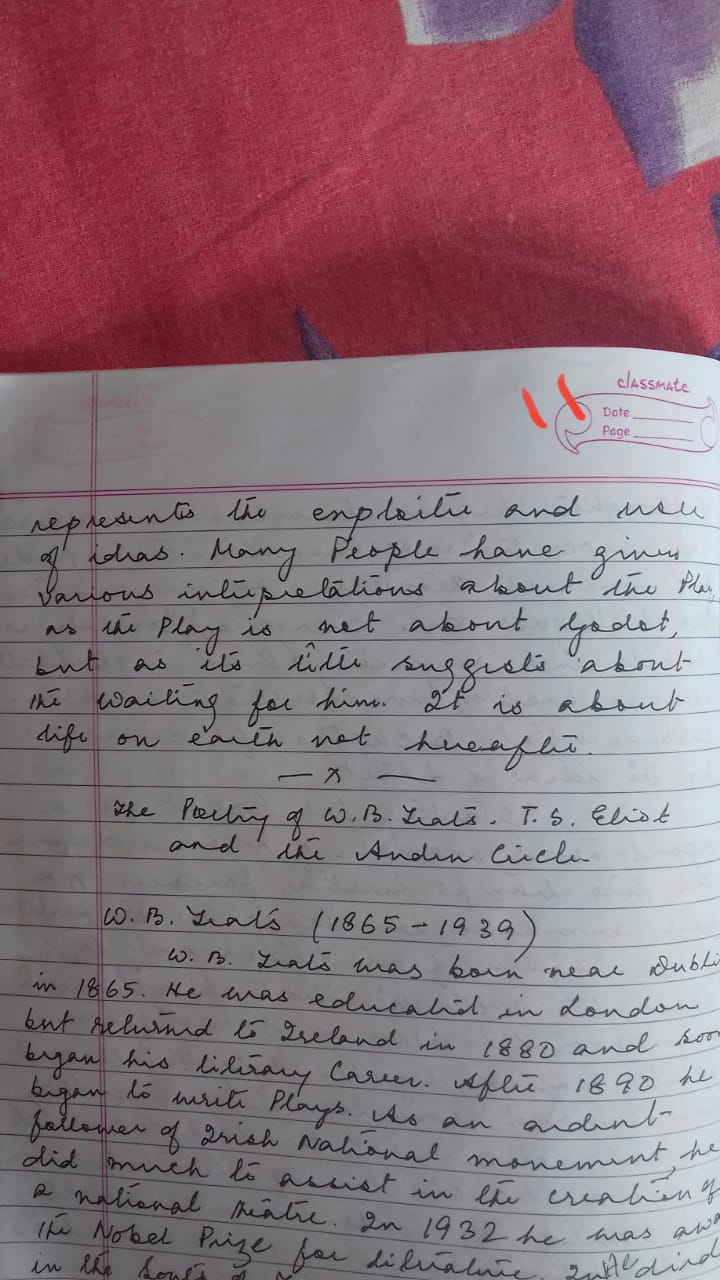 classmate
Date
Page
11
represents the exploiter and user
of ideas. Many People have given
various interpretations about the Play,
as the Play is not about Godot,
but as its title suggests about
the waiting for him. It is about
life on earth not hereafter.
— x —
The Poetry of W.B. Yeats. T. S. Eliot
and the Auden Circle
W. B. Yeats (1865 - 1939)
W. B. Yeats was born near Dubli
in 1865. He was educated in London
but returned to Ireland in 1880 and soon
began his literary Career. After 1890 he
began to write Plays. As an ardent
follower of Irish National movement, he
did much to assist in the creation of
a national theatre. In 1932 he was awa
the Nobel Prize for literature. He died
in the South of